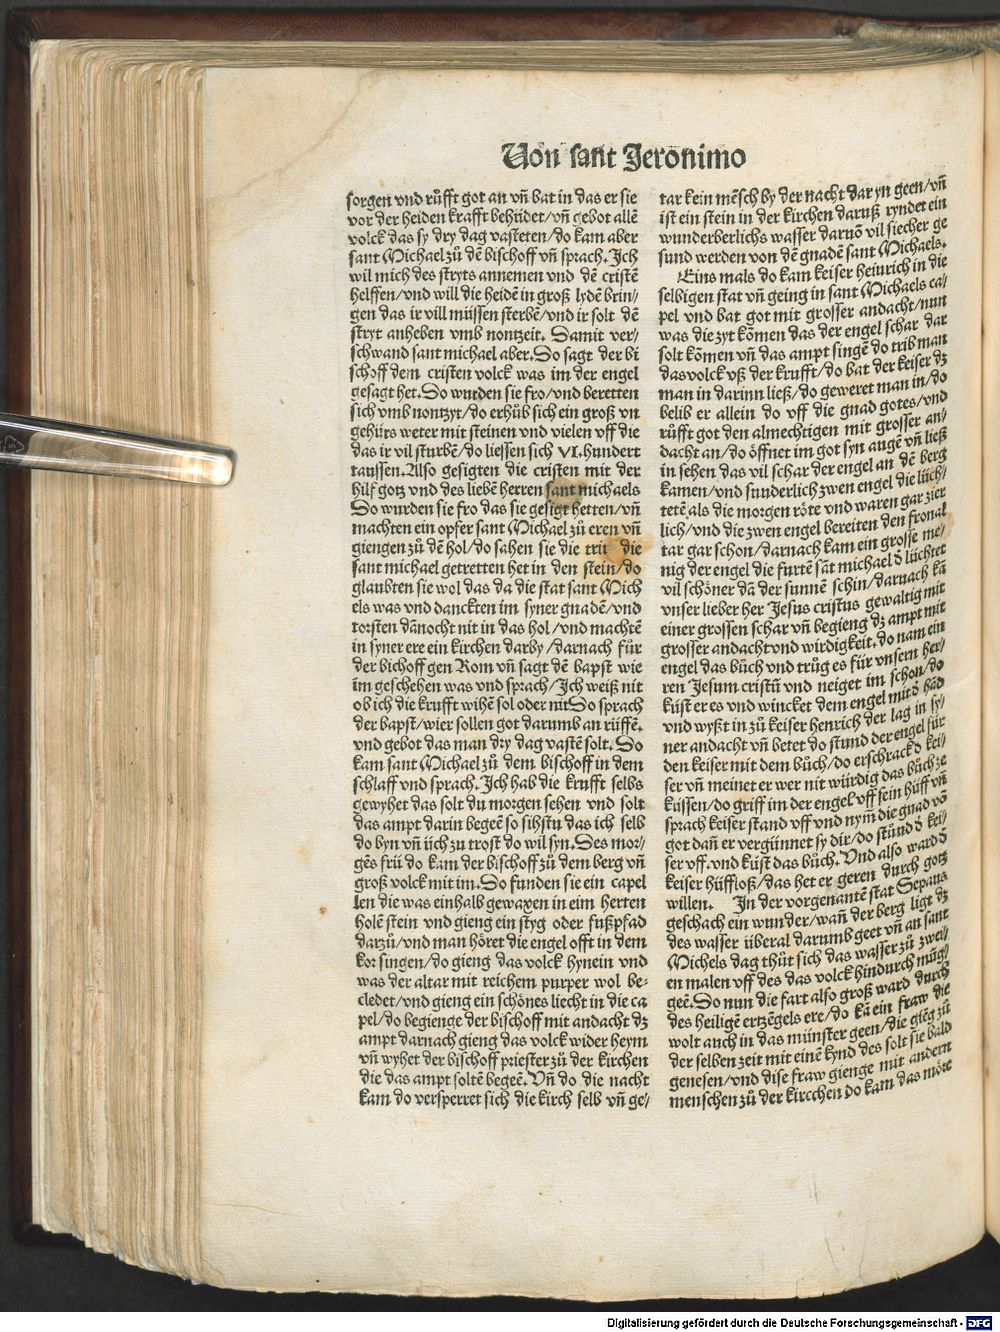 Von sant Jeronimo
sorgen vnd růfft got an vñ bat in das er sie
vor der heiden krafft behüdet/vñ gebot allē
volck das sy dry dag vasteten/do kam aber
sant Michael zů dē bischoff vñ sprach. Ich
wil mich des stryts annemen vnd dē cristē
helffen/vnd will die heidē in groß lydē brin/
gen das ir vill müssen sterbē/vnd ir solt dē
stryt anheben vmb nontzeit. Damit ver/
schwand sant michael aber. Do sagt der bi
schoff dem cristen volck was im der engel
gesagt het. Do wurden sie fro/vnd beretten
sich vmb nontzyt/do erhůb sich ein groß vn
gehürs weter mit steinen vnd vielen vff die
das ir vil sturbē/do liessen sich VI. hundert
taussen. Also gesigten die cristen mit der
hilf gotz vnd des liebē herren sant michaels
Do wurden sie fro das sie gesigt hetten/vñ
machten ein opfer sant Michael zů eren vñ
giengen zů dē hol/do sahen sie die trit die
sant michael getretten het in den stein/do
glaubten sie wol das da die stat sant Mich
els was vnd danckten im syner gnadē/vnd
torsten dānocht nit in das hol/vnd machtē
in syner ere ein kirchen darby/darnach fůr
der bischoff gen Rom vñ sagt dē bapst wie
im geschehen was vnd sprach/Ich weiß nit
ob ich die krufft wihē sol oder nit Do sprach
der bapst/wier sollen got darumb an rüffē.
vnd gebot das man dry dag vastē solt. Do
kam sant Michael zů dem bischoff in dem
schlaff vnd sprach. Ich hab die krufft selbs
gewyhet das solt du morgen sehen vnd solt
das ampt darin begeē so sihstu das ich selb
do byn vñ üch zu trost do wil syn. Des mor/
gēs frü do kam der bischoff zů dem berg vñ
groß volck mit im. Do funden sie ein capel
len die was einhalb gewaxen in eim herten
holē stein vnd gieng ein styg oder fußpfad
darzů/vnd man höret die engel offt in dem
kor singen/do gieng das volck hynein vnd
was der altar mit reichem purper wol be/
cledet/vnd gieng ein schönes liecht in die ca
pel/do begienge der bischoff mit andacht dz
ampt darnach gieng das volck wider heym
vñ wyhet der bischoff priester zů der kirchen
die das ampt soltē begeē. Vñ do die nacht
kam do versperret sich die kirch selb vñ ge/
tar kein mēsch by der nacht dar yn geen/vñ
ist ein stein in der kirchen daruß ryndet ein
wunderberlichs wasser daruō vil siecher ge
sund werden von dē gnadē sant Michaels.
Eins mals do kam keiser heinrich in die
selbigen stat vñ geing in sant Michaels ca/
pel vnd bat got mit grosser andacht/nun
was die zyt kōmen das der engel schar dar
solt kōmen vñ das ampt singē do trib man
das volck vß der krufft/do bat der keiser dz
man in darinn ließ/do geweret man in/do
belib er allein do vff die gnad gotes/vnd
růfft got den almechtigen mit grosser an/
dacht an/do öffnet im got syn augē vñ ließ
in sehen das vil schar der engel an dē berg
kamen/vnd sunderlich zwen engel die lüch/
tetē als die morgen röte vnd waren gar zier
lich/vnd die zwen engel bereiten den fronal
tar gar schon/darnach kam ein grosse me/
nig der engel die furtē sāt michael ď lüchtet
vil schöner dā der sunnē schin/darnach kā
vnser lieber her Jesus cristus gewaltig mit
einer grossen schar vñ begieng dz ampt mit
grosser andacht vnd wirdigkeit. do nam ein
engel das bůch vnd trůg es für vnsern her/
ren Jesum cristū vnd neiget im schon/do
küst er es vnd wincket dem engel mit ď hād
vnd wyßt in zů keiser henrich der lag in sy/
ner andacht vñ betet do stund der engel für
den keiser mit dem bůch/do erschrack ď kei/
ser vñ meinet er wer nit würdig das bůch ze
küssen/do griff im der engel vff sein hüff vñ
sprach keiser stand vff vnd nym̄ die gnad vō
got dañ er vergünnet sy dir/do stůnd ď kei/
ser vff. vnd küst das bůch. Vnd also ward ď
keiser hüffloß/das het er geren durch gotz
willen. In der vorgenantē stat Sepaus
geschach ein wunder/wañ der berg ligt dz
des wasser überal darumb geet vñ an sant
Michels dag thüt sich das wasser zů zwei/
en malen vff des das volck hindurch müg/
geē. Do nun die fart also groß ward durch
des heiligē ertzēgels ere/do kā ein fraw die
wolt auch in das münster geen/die giēg zů
der selben zeit mit einē kynd des solt sie bald
genesen/vnd dise fraw gienge mit andern
menschen zů der kircchen do kam das möre
Digitalisierung gefördert durch die Deutsche Forschungsgemeinschaft - DFG